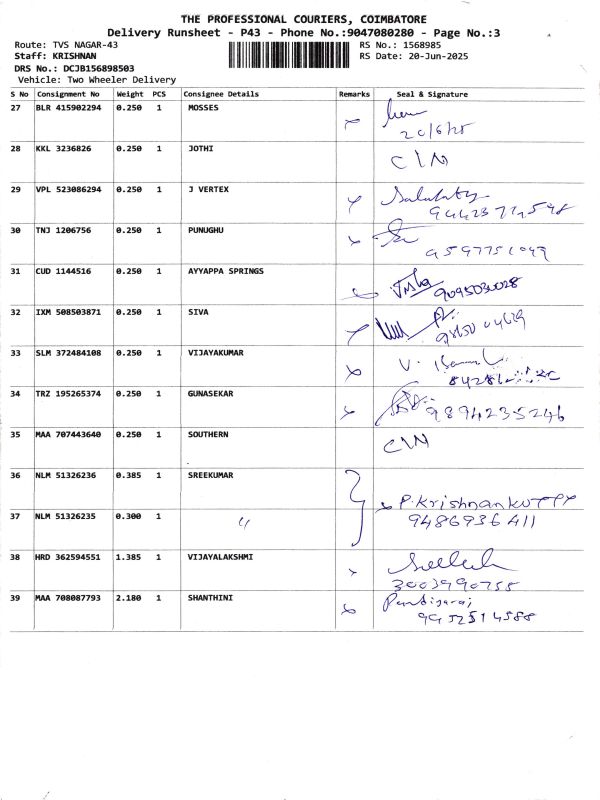 THE PROFESSIONAL COURIERS, COIMBATORE
Delivery Runsheet - P43 - Phone No.:9047080280 - Page No.:3
Route: TVS NAGAR-43 RS No.: 1568985
Staff: KRISHNAN RS Date: 20-Jun-2025
DRS No.: DCJB156898503
Vehicle: Two Wheeler Delivery
S No Consignment No Weight PCS Consignee Details Remarks Seal & Signature
27 BLR 415902294 0.250 1 MOSSES
20/6/25
28 KKL 3236826 0.250 1 JOTHI
C/N
29 VPL 523086294 0.250 1 J VERTEX
30 TNJ 1206756 0.250 1 PUNUGHU
9597751099
31 CUD 1144516 0.250 1 AYYAPPA SPRINGS
9095030028
32 IXM 508503871 0.250 1 SIVA
33 SLM 372484108 0.250 1 VIJAYAKUMAR
34 TRZ 195265374 0.250 1 GUNASEKAR
9894235246
35 MAA 707443640 0.250 1 SOUTHERN
C/N
36 NLM 51326236 0.385 1 SREEKUMAR
P.Krishnankutty
37 NLM 51326235 0.300 1 〃
9486936411
38 HRD 362594551 1.385 1 VIJAYALAKSHMI
39 MAA 708087793 2.180 1 SHANTHINI
Pandiyaraj
9952514588